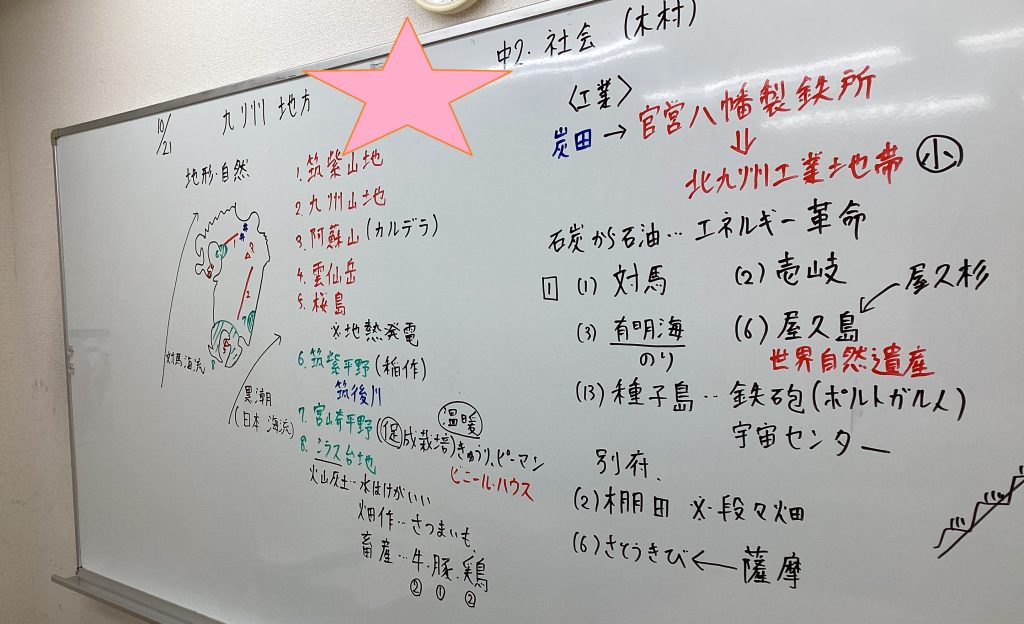 10/21
九州地方
中2.社会(木村)
地形・自然
対馬海流
黒潮
(日本海流)
1.筑紫山地
2.九州山地
3.阿蘇山(カルデラ)
4.雲仙岳
5.桜島
※地熱発電
6.筑紫平野(稲作)
筑後川
7.宮崎平野(促成栽培)きゅうり、ピーマン
温暖
ビニールハウス
8.シラス台地
火山灰土…水はけがいい
畑作…さつまいも
畜産…牛.豚.鶏
② ① ②
〈工業〉
炭田→官営八幡製鉄所
⇓
北九州工業地帯 小
石炭から石油…エネルギー革命
1 (1)対馬 (2)壱岐
屋久杉
(3)有明海 (6)屋久島
のり 世界自然遺産
(13)種子島…鉄砲(ポルトガル人)
宇宙センター
別府.
(2)棚田 ※段々畑
(6)さとうきび←薩摩